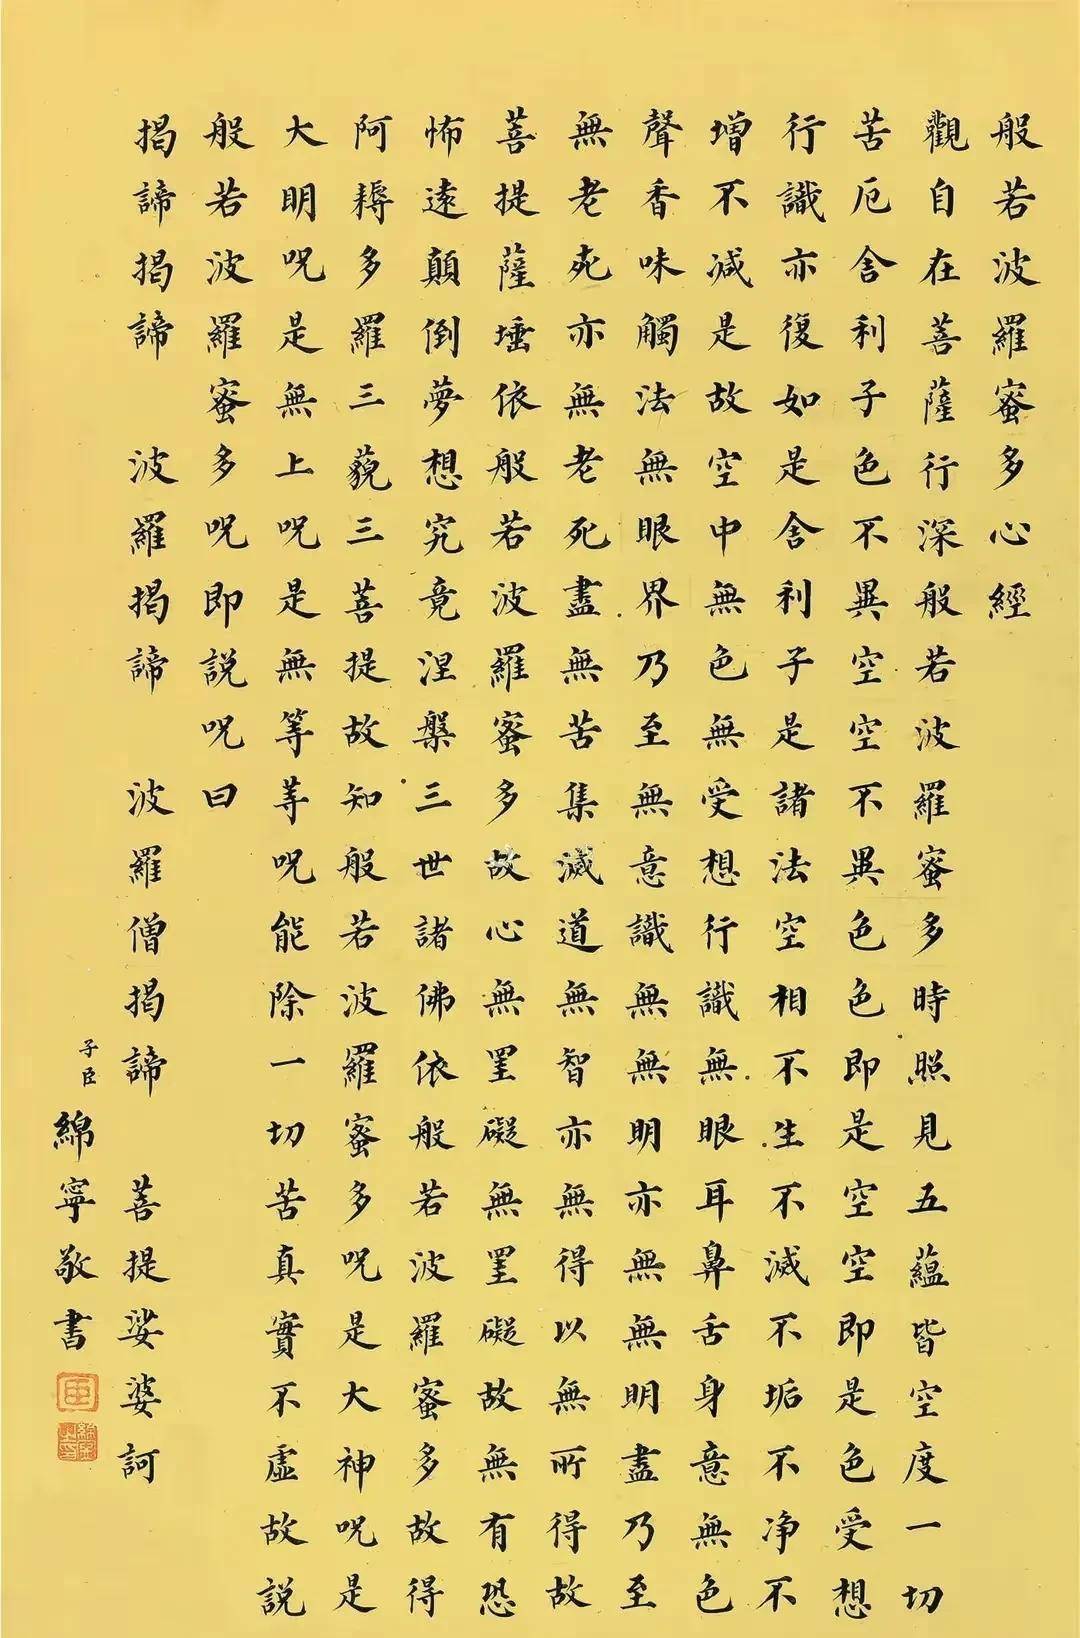 般若波羅蜜多心經
觀自在菩薩行深般若波羅蜜多時照見五蘊皆空度一切
苦厄舍利子色不異空空不異色色即是空空即是色受想
行識亦復如是舍利子是諸法空相不生不滅不垢不净不
增不減是故空中無色無受想行識無眼耳鼻舌身意無色
聲香味觸法無眼界乃至無意識無無明亦無無明盡乃至
無老死亦無老死盡無苦集滅道無智亦無得以無所得故
菩提薩埵依般若波羅蜜多故心無罣礙無罣礙故無有恐
怖遠顛倒夢想究竟涅槃三世諸佛依般若波羅蜜多故得
阿耨多羅三藐三菩提故知般若波羅蜜多呪是大神呪是
大明呪是無上呪是無等等呪能除一切苦真實不虛故說
般若波羅蜜多呪即說呪曰
揭諦揭諦 波羅揭諦 波羅僧揭諦 菩提娑婆訶
子臣綿寧敬書
臣